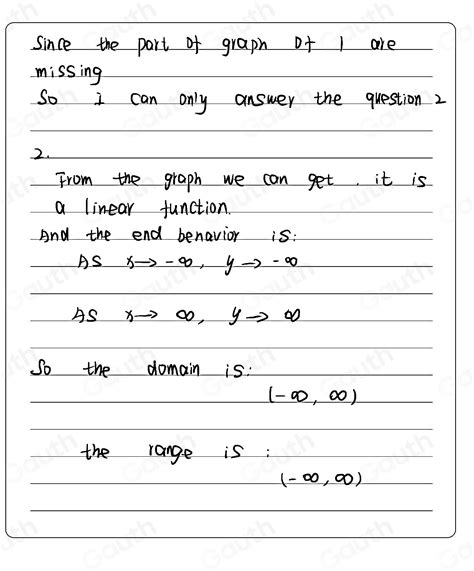 Since the part of graph of 1 are
missing
So I can only answer the question 2
2.
From the graph we can get. it is
a linear function.
And the end behavior is:
As x→ -∞, y→ -∞
As x→ ∞, y→ ∞
So the domain is:
(-∞, ∞)
the range is :
(-∞, ∞)